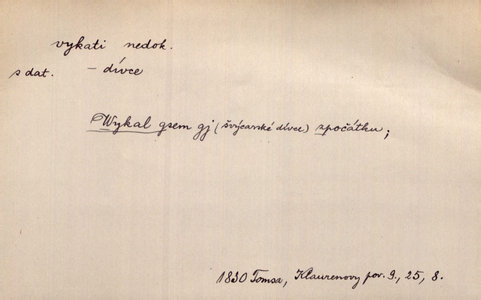 vykati nedok.
s dat. – dívce
Wykal gsem gj (švýcarské dívce) zpočátku;
1830 Tomsa, Klaurenovy pov. 9., 25, 8.